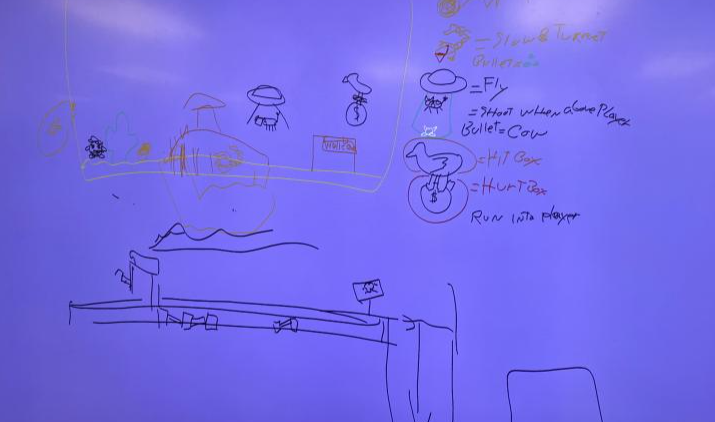 = Slow & Turret
Bullet =
= Fly
= Shoot when above Player
Bullet = Cow
= Hit Box
$
= Hurt Box
$
Run into player